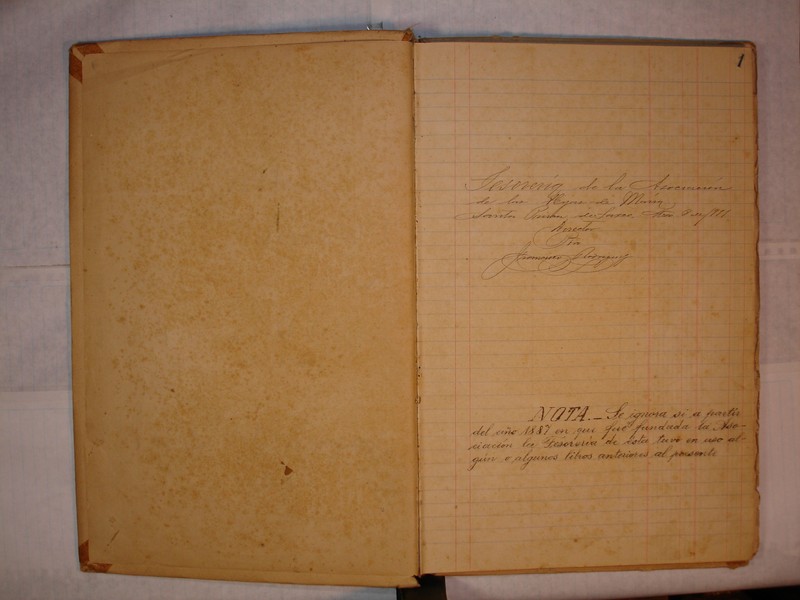 1
Tesoreria de la Asociación
de las Hijas de Maria
Santa
Director
Pro
Francisco
NOTA.— Se ignora si a partir
del año 1887 en que fué fundada la Aso-
ciación la Tesorería de ésta tuvo en uso al-
gún o algunos libros anteriores al presente